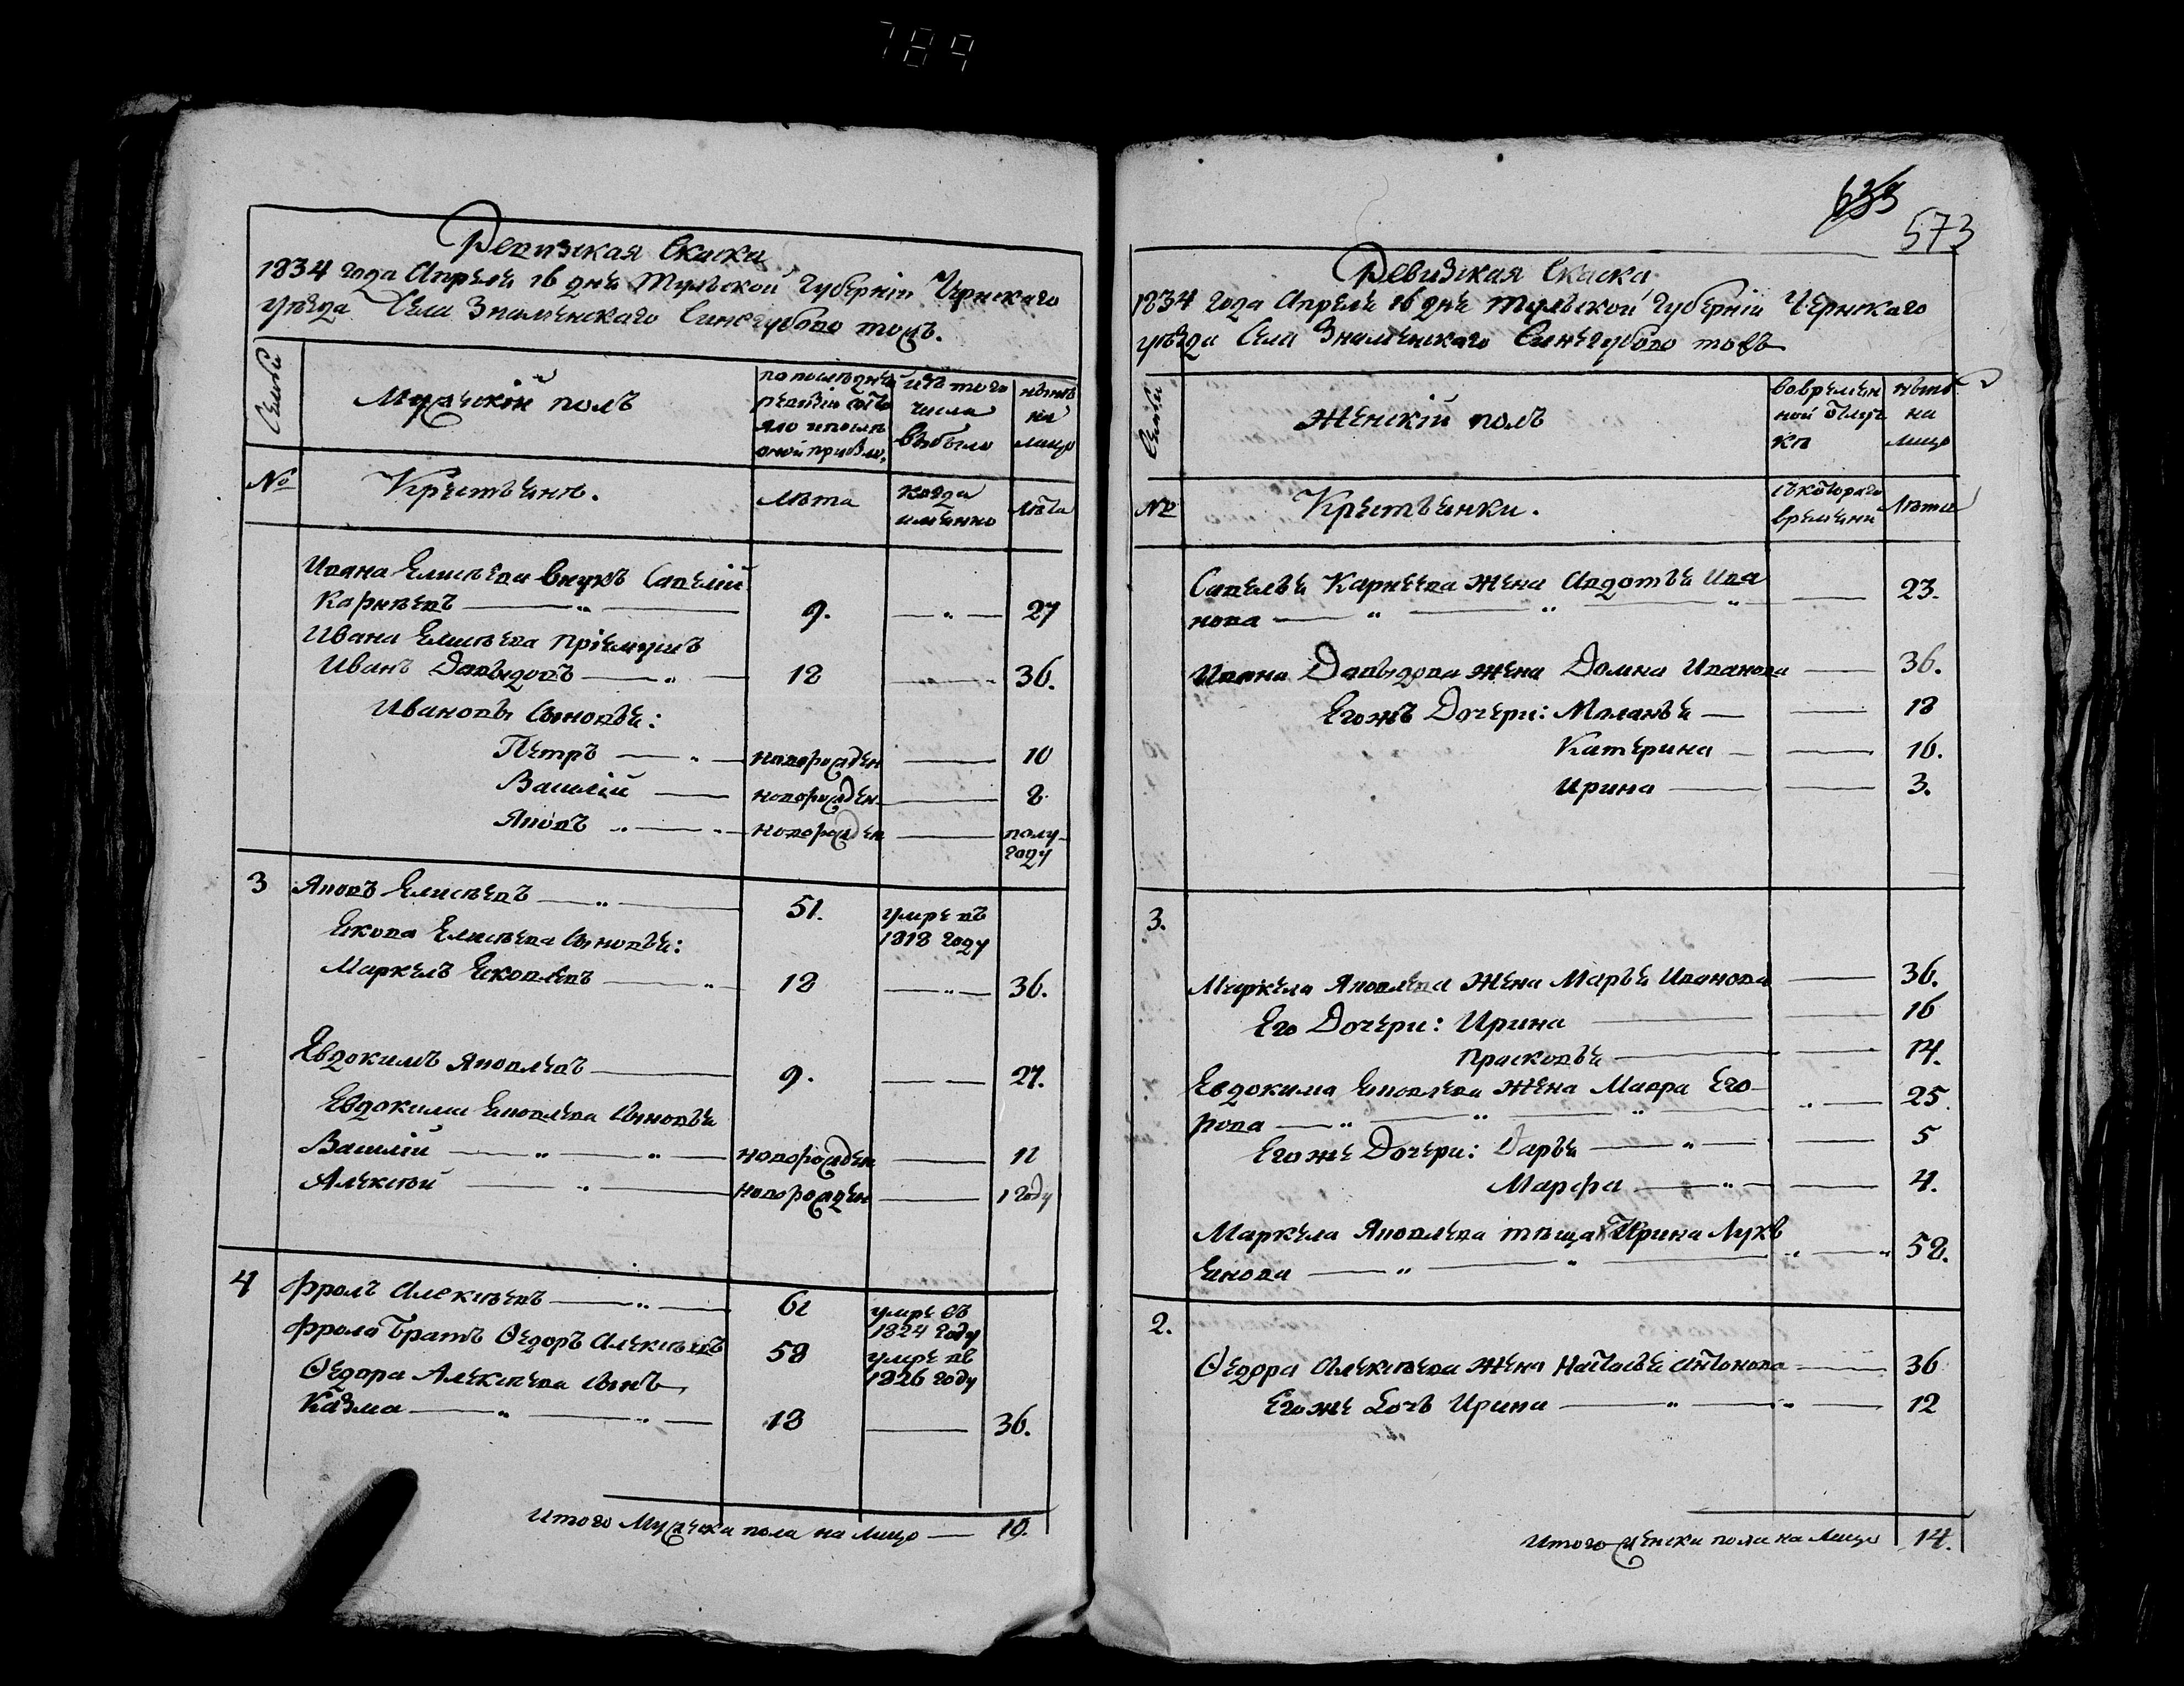 789
Ревизская Скаска
1834 года Апреля 16 дня Тульской Губернiи Чернскаго
уезда Села Знаменскаго Синегубово тожъ.
Семьи
Мужескiй полъ
по последней
ревизiи состо
яло и после
оной прибы.
изъ того
числа
выбыло
ныне
на
лицо
№
Крестьяне.
Лета
когда
именно
лета
Ивана Елисеева внукъ Савелiй
Карнеевъ — 9. — 27
Ивана Елисеева прiемышъ
Иванъ Давыдовъ — 18 — 36.
Ивановы Сыновья:
Петръ — новорожден — 10
Василiй — новорожден — 8
Яковъ — новорожден — полу-
году
3 Яковъ Елисеевъ — 51. умре въ
1818 году
Екова Елисеева Сыновья:
Маркелъ Ековлевъ — 18 — 36.
Евдокимъ Яковлевъ — 9. — 27.
Евдокима Ековлева Сыновья
Василiй — новорожден — 11
Алексей — новорожден — 1 году
4 Фролъ Алексеевъ — 61 умре въ
1824 году
Фрола братъ Ѳедоръ Алексеевъ 58 умре въ
1826 году
Ѳедора Алексеева Сынъ
Казма — 18 — 36.
Итого Мужеска пола на лицо — 10.
573
Ревизская Скаска
1834 года Апреля 16 дня Тульской Губернiи Чернскаго
уезда Села Знаменскаго Синегубово тожъ
Семьи
Женскiй полъ
во времен
ной отлуч
ке
ныне
на
лицо
№
Крестьянки.
съ котораго
времени
Лета
Савелья Карнеева жена Авдотья Ива
нова — 23.
Ивана Давыдова жена Домна Иванова — 36.
Егожъ Дочери: Маланья — 18
Катерина — 16.
Ирина — 3.
3.
Маркела Яковлева жена Марья Иванова — 36.
Его Дочери: Ирина — 16
Прасковья — 14.
Евдокима Ековлева жена Мавра Его
рова — 25.
Егоже Дочери: Дарья — 5
Марфа — 4.
Маркела Яковлева теща Ирина Лукь
енова — 58.
2.
Ѳедора Алексеева жена Настасья Антонова — 36
Егоже Дочь Ирина — 12
Итого женска пола на лицо 14.